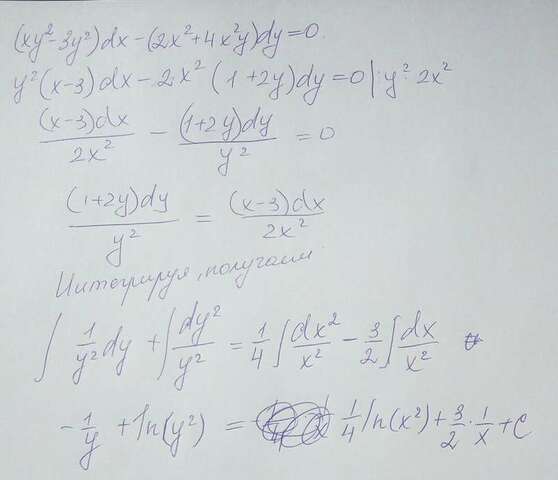 (xy²-3y²)dx-(2x²+4x²y)dy=0.
y²(x-3)dx-2·x²(1+2y)dy=0|:y²·2x²
(x-3)dx/2x² - (1+2y)dy/y² = 0
(1+2y)dy/y² = (x-3)dx/2x²
Интегрируя, получаем
∫ 1/y² dy + ∫ dy²/y² = 1/4 ∫ dx²/x² - 3/2 ∫ dx/x²
-1/y + ln(y²) = 1/4 ln(x²) + 3/2 · 1/x + C